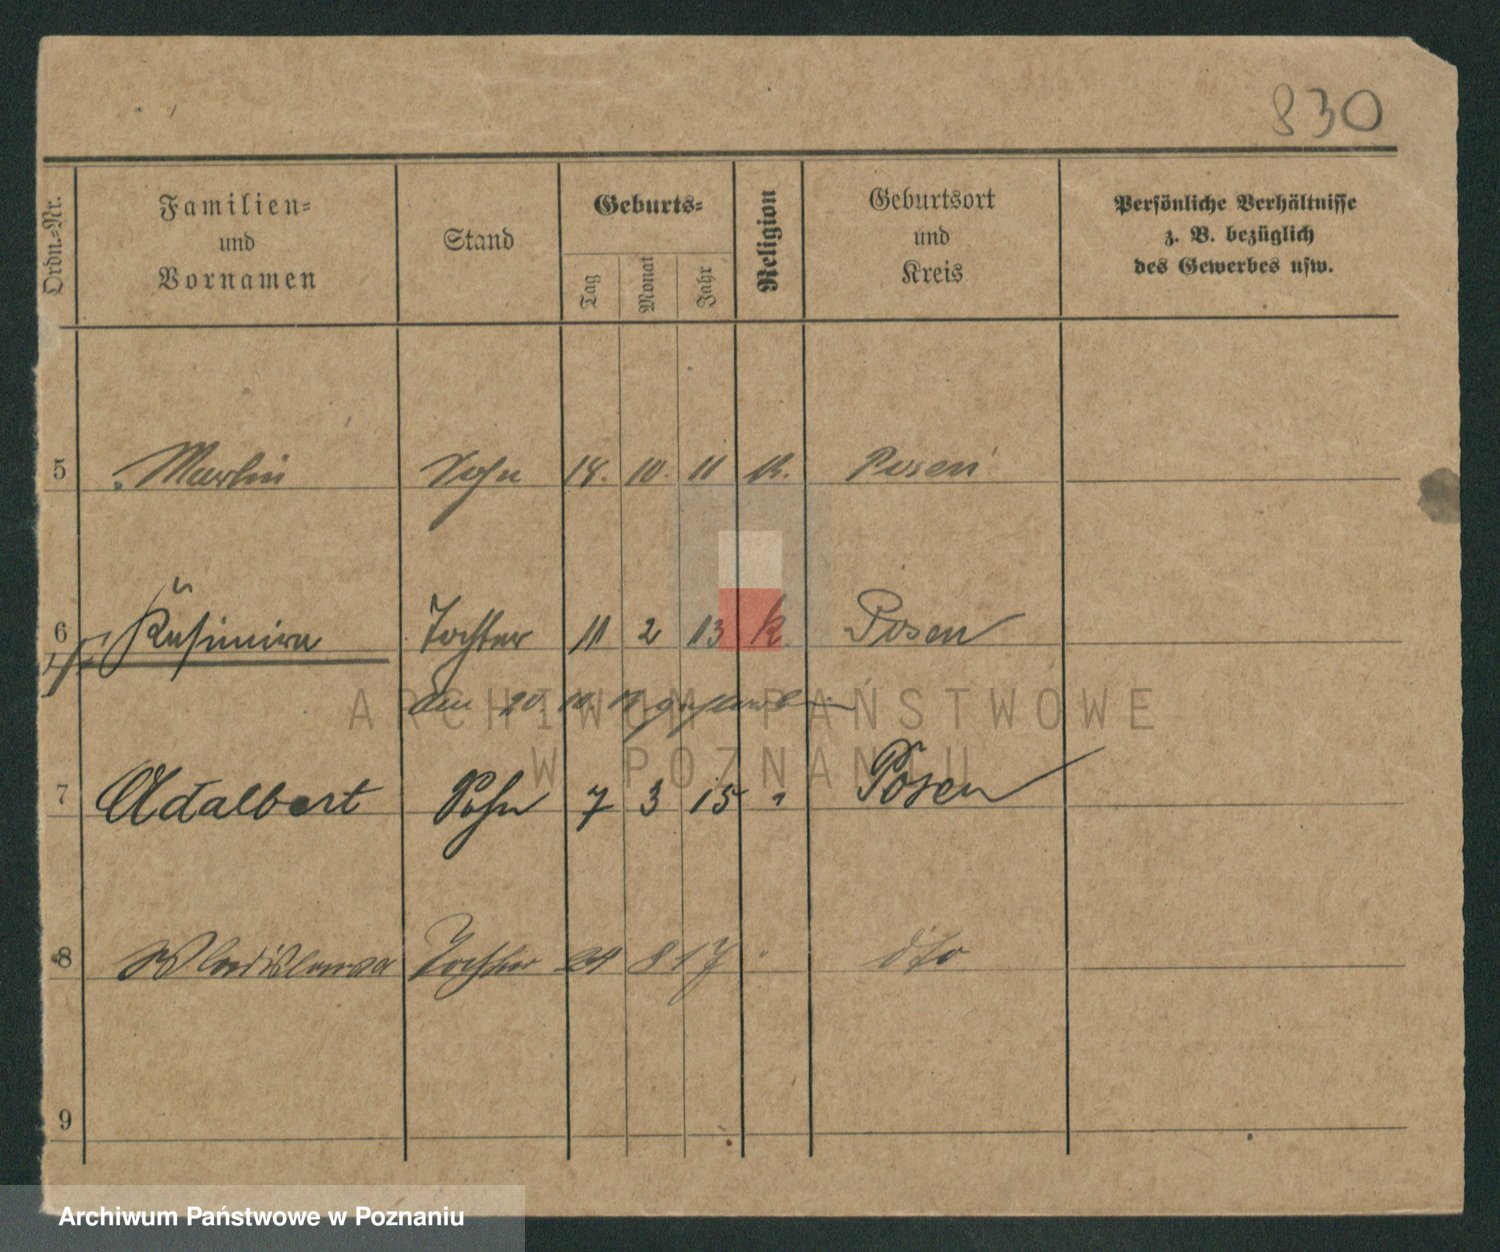 830
Ordn.=Nr.
Familien=
und
Vornamen
Stand
Geburts=
Tag
Monat
Jahr
Religion
Geburtsort
und
Kreis
Persönliche Verhältnisse
z. B. bezüglich
des Gewerbes usw.
5 Martin Sohn 10. 11 k. Posen
6 Kasimira Tochter 11 2 13 k. Posen
den 20. 10. gestorben
7 Adalbert Sohn 7 3 15 " Posen
8 Wladislawa Tochter 8 17 " dto
9
ARCHIWUM PAŃSTWOWE
W POZNANIU
Archiwum Państwowe w Poznaniu